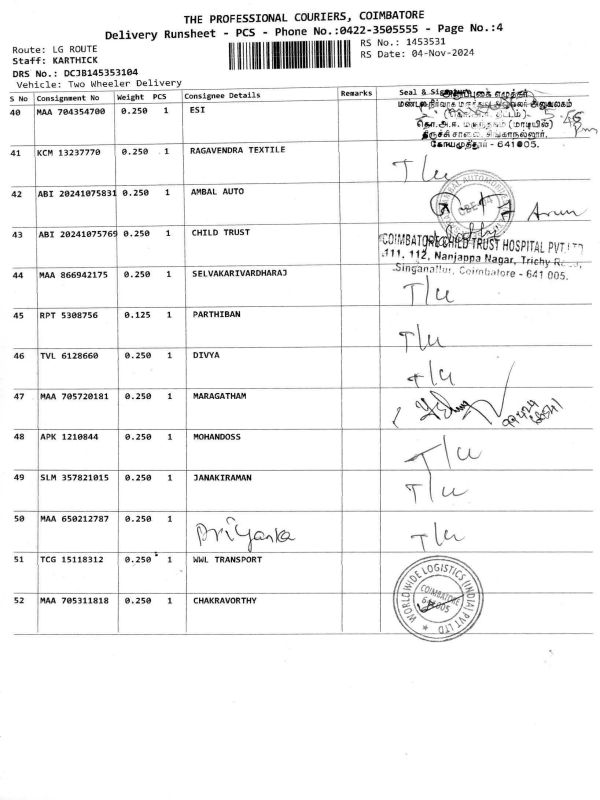 THE PROFESSIONAL COURIERS, COIMBATORE
Delivery Runsheet - PCS - Phone No.:0422-3505555 - Page No.:4
Route: LG ROUTE
RS No.: 1453531
Staff: KARTHICK
RS Date: 04-Nov-2024
DRS No.: DCJB145353104
Vehicle: Two Wheeler Delivery
S No Consignment No Weight PCS Consignee Details Remarks Seal &
40 MAA 704354700 0.250 1 ESI
(மாடியில்)
திருச்சி சாலை, சிங்காநல்லூர்.
கோயமுத்தூர் - 641 005.
41 KCM 13237770 0.250 1 RAGAVENDRA TEXTILE
T/u
42 ABI 20241075831 0.250 1 AMBAL AUTO
Arun
43 ABI 20241075769 0.250 1 CHILD TRUST
COIMBATORE CHILD TRUST HOSPITAL PVT LTD
111, 112, Nanjappa Nagar, Trichy Road,
Singanallur, Coimbatore - 641 005.
44 MAA 866942175 0.250 1 SELVAKARIVARDHARAJ
T/u
45 RPT 5308756 0.125 1 PARTHIBAN
T/u
46 TVL 6128660 0.250 1 DIVYA
T/u
47 MAA 705720181 0.250 1 MARAGATHAM
48 APK 1210844 0.250 1 MOHANDOSS
T/u
49 SLM 357821015 0.250 1 JANAKIRAMAN
T/u
50 MAA 650212787 0.250 1 Priyanka
T/u
51 TCG 15118312 0.250 1 WWL TRANSPORT
WORLDWIDE LOGISTICS (INDIA) PVT LTD
COIMBATORE
641 005
52 MAA 705311818 0.250 1 CHAKRAVORTHY